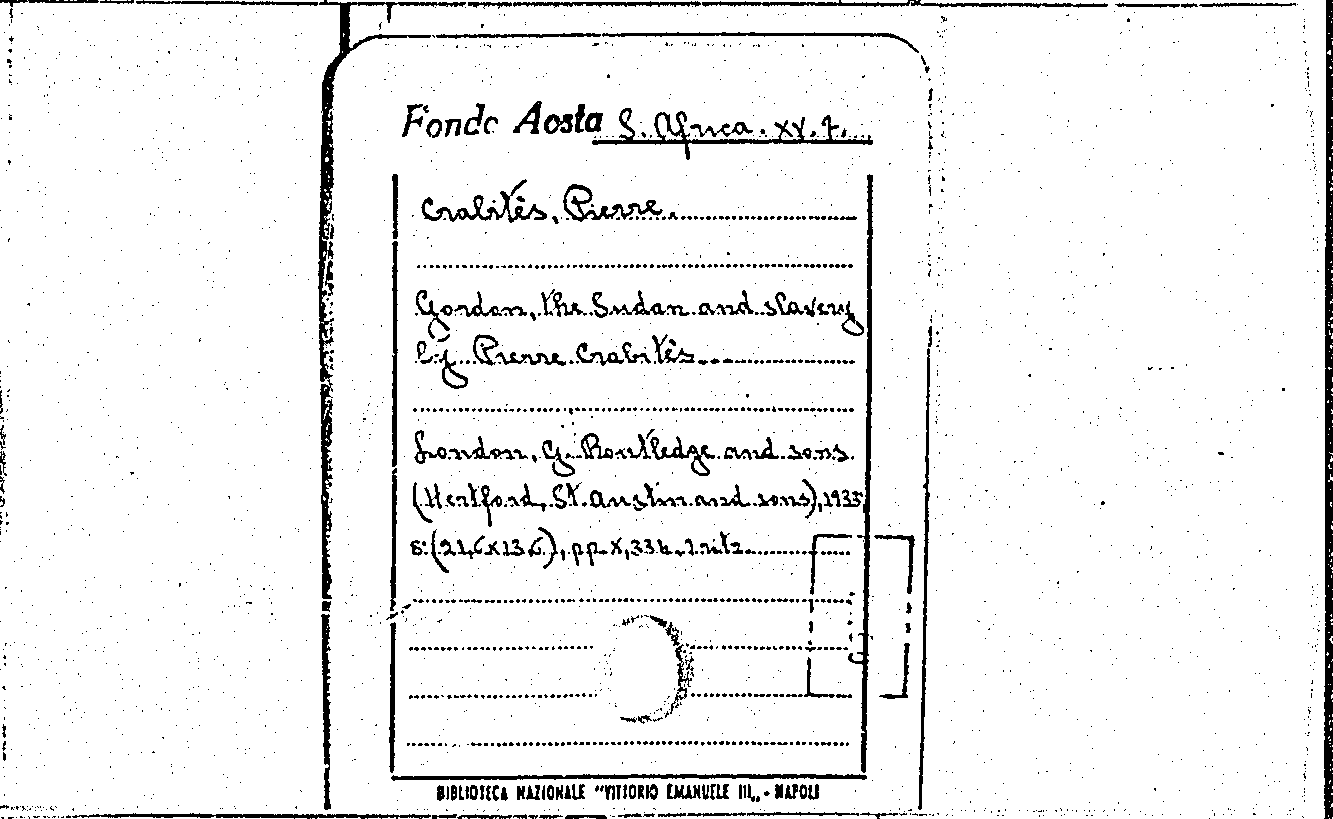 Fondo Aosta S. Africa. XV. 7.
Crabitès, Pierre.
Gordon, the Sudan and slavery
by Pierre Crabitès
London, G. Routledge and sons
(Hertford, St. Austin and sons), 1933
8° (21,6x13,6), pp. X, 334. 1 ritr.
BIBLIOTECA NAZIONALE "VITTORIO EMANUELE III„ - NAPOLI